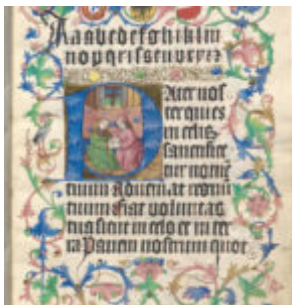 Aaabcdefghiklm
nopqrsstuvxyz
PAter nos
ter qui es
in celis
sanctifice
tur nomē
tuum Adveniat regnū
tuum Fiat voluntas
tua sicut in celo et in ter
ra Panem nostrum quot